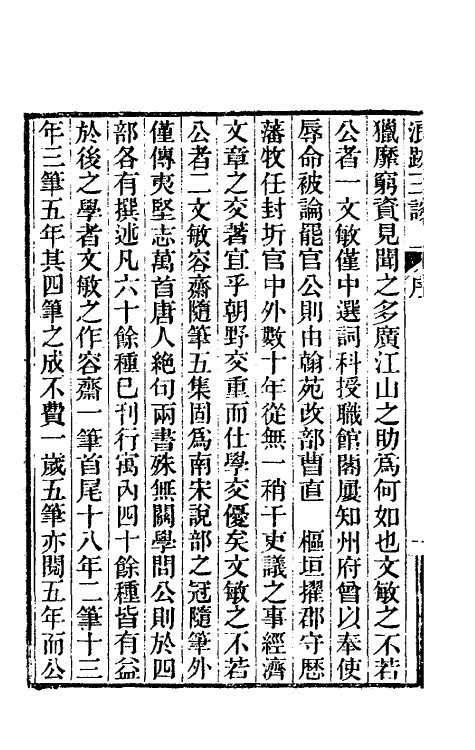 浪跡三談 序 一
獵靡窮資見聞之多廣江山之助爲何如也文敏之不若
公者一文敏僅中選詞科授職館閣屢知州府曾以奉使
辱命被論罷官公則由翰苑改部曹直 樞垣擢郡守歷
藩牧任封圻官中外數十年從無一稍干吏議之事經濟
文章之交著宜乎朝野交重而仕學交優矣文敏之不若
公者二文敏容齋隨筆五集固爲南宋說部之冠隨筆外
僅傳夷堅志萬首唐人絕句兩書殊無關學問公則於四
部各有撰述凡六十餘種已刊行寓內四十餘種皆有益
於後之學者文敏之作容齋一筆首尾十八年二筆十三
年三筆五年其四筆之成不費一歲五筆亦閱五年而公